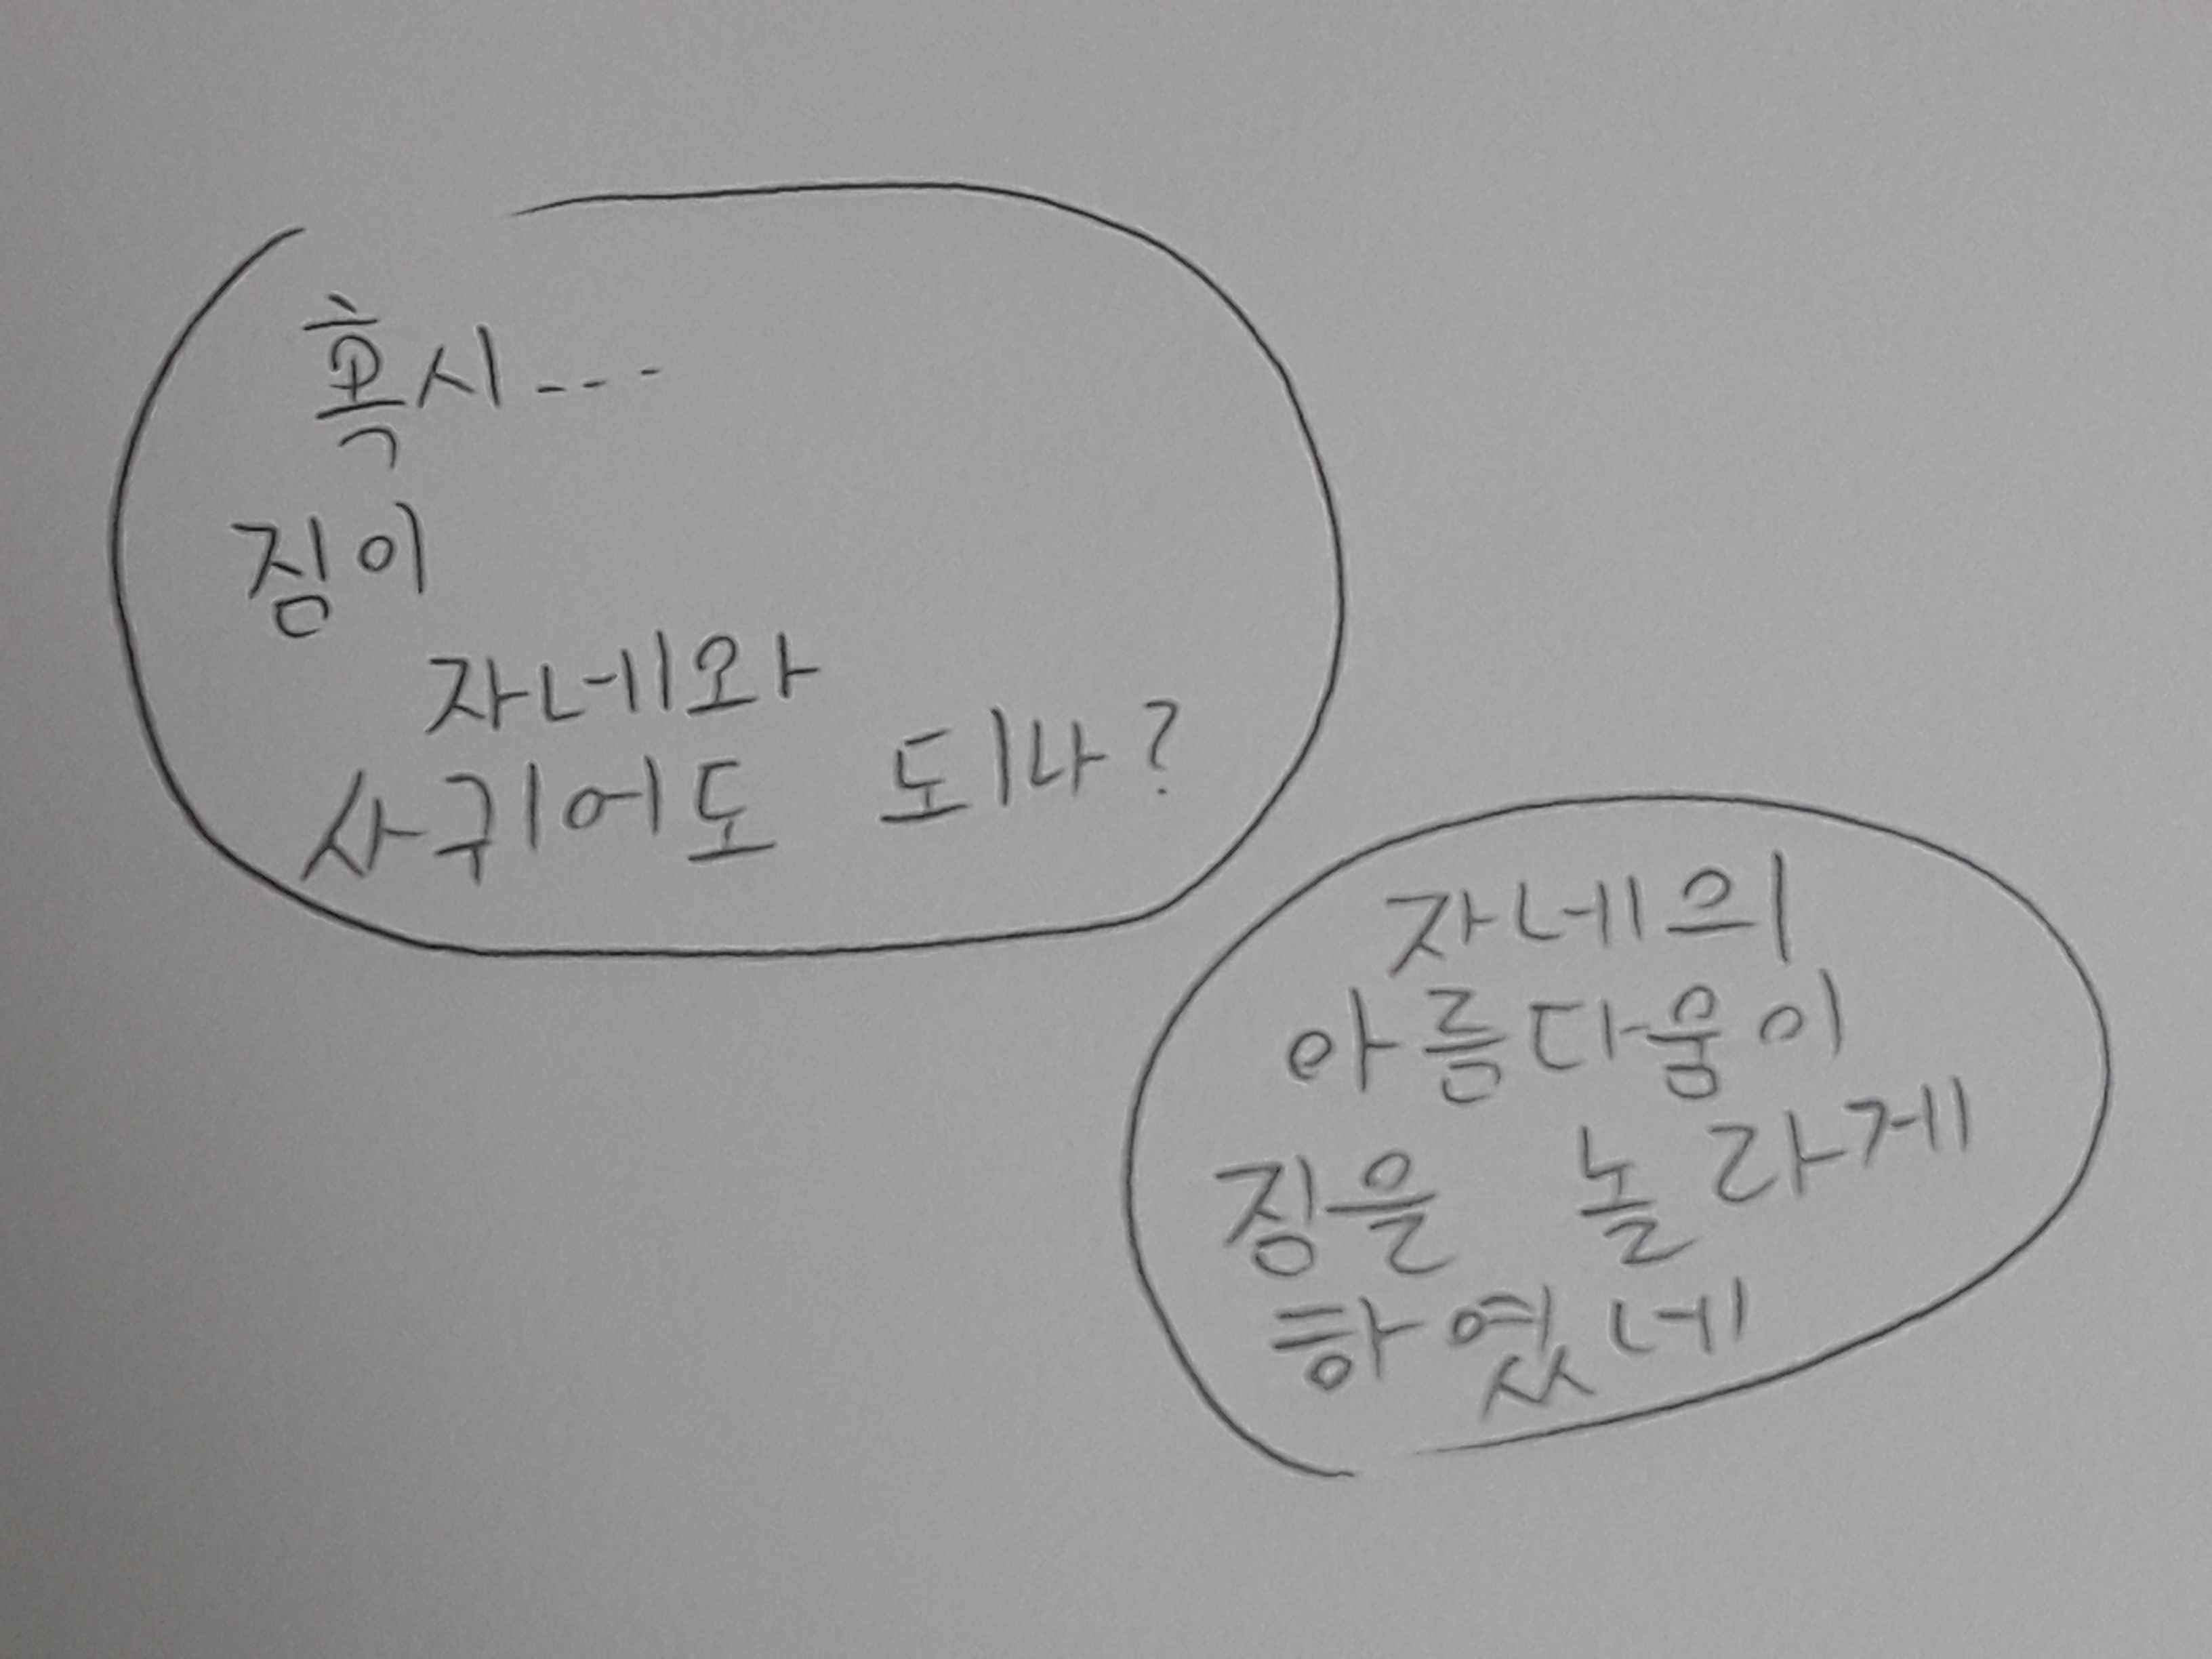 혹시...
짐이
자네와
사귀어도 되나?
자네의
아름다움이
짐을 놀라게
하였네